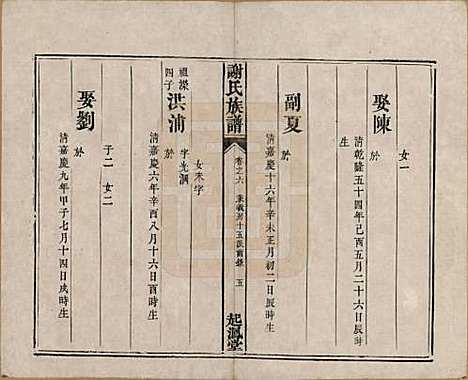 女一
娶陳
於
清乾隆五十四年己酉五月二十六日辰時
生
副夏
於
清嘉慶十六年辛未正月初二日辰時生
謝氏族譜
卷之六
十五派
五
起鳳堂
女未字
祖濚
四子
洪浦
字光澜
於
清嘉慶六年辛酉八月十六日酉時生
子二 女二
娶劉
於
清嘉慶九年甲子七月十四日戌時生